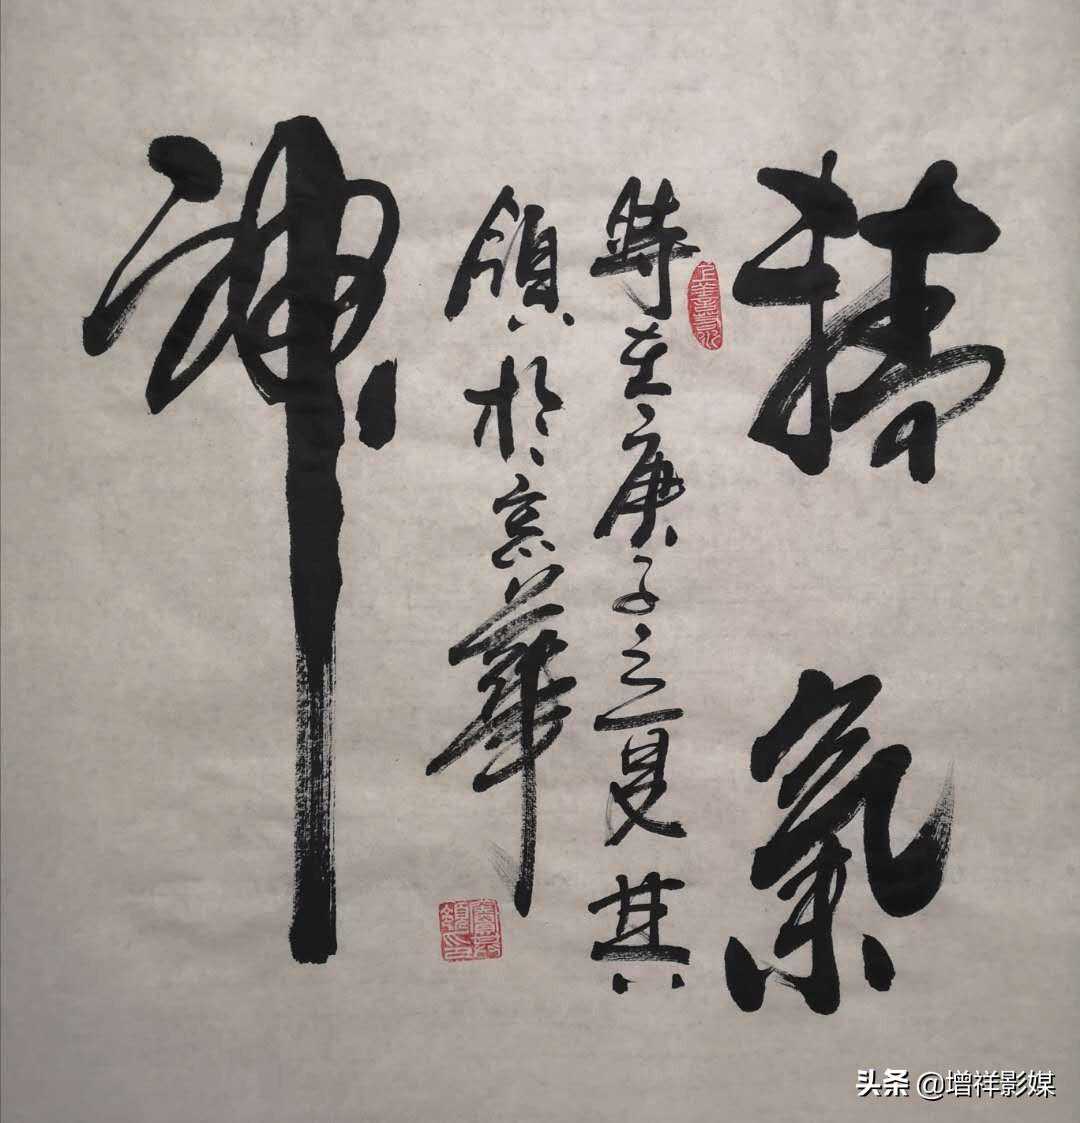 精氣
上善若水
時在庚子之夏其
領於京華
神
头条 @增祥影媒